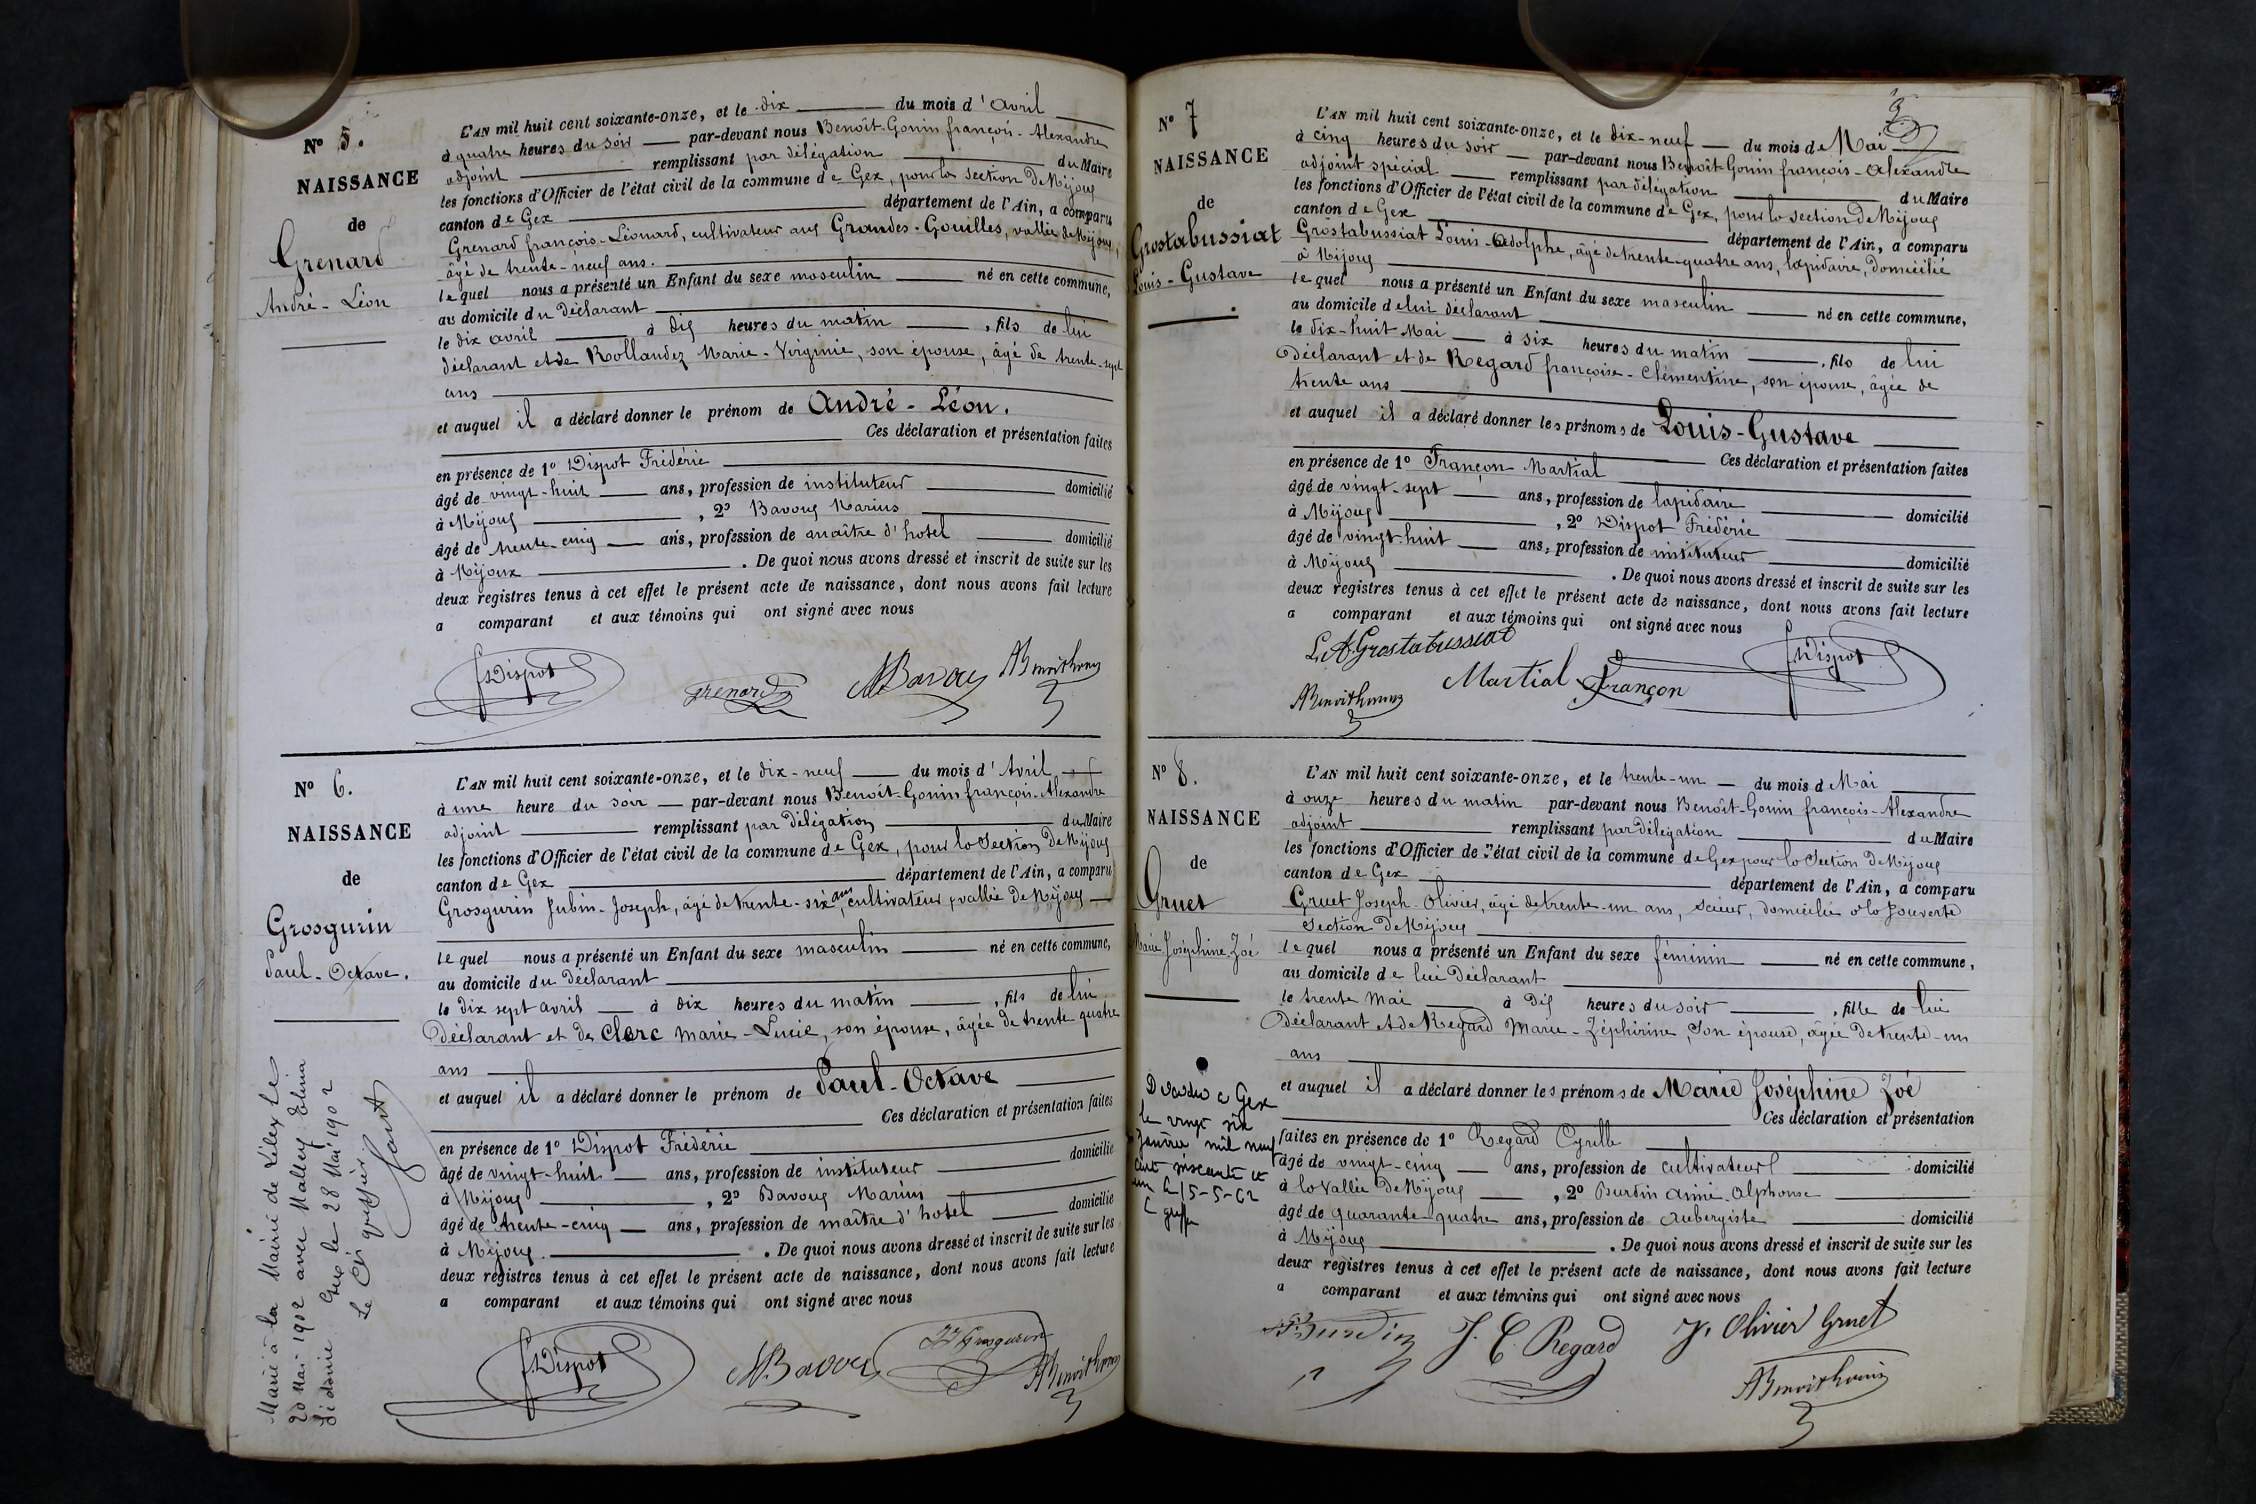 N° 5.
NAISSANCE
de
Grenard
André - Léon
L'AN mil huit cent soixante-onze, et le dix du mois d'avril
à quatre heures du soir par-devant nous Benoît-Gonin françois-Alexandre
adjoint remplissant par délégation du Maire
les fonctions d'Officier de l'état civil de la commune de Gex, pour la section de Mijoux
canton de Gex département de l'Ain, a comparu
Grenard françois-Léonard, cultivateur aux Grandes-Gouilles, vallée de Mijoux,
âgé de trente-neuf ans.
lequel nous a présenté un Enfant du sexe masculin né en cette commune,
au domicile du déclarant
le dix avril à dix heures du matin, fils de lui
déclarant et de Rollandez Marie-Virginie, son épouse, âgé de trente-sept
ans
et auquel il a déclaré donner le prénom de André-Léon.
Ces déclaration et présentation faites
en présence de 1° Dispot Frédéric
âgé de vingt-huit ans, profession de instituteur domicilié
à Mijoux, 2° Bavoux Marius
âgé de trente-cinq ans, profession de maître d'hotel domicilié
à Mijoux. De quoi nous avons dressé et inscrit de suite sur les
deux registres tenus à cet effet le présent acte de naissance, dont nous avons fait lecture
a comparant et aux témoins qui ont signé avec nous
f Dispot Grenard M Bavoux A Benoit Gonin
N° 6.
NAISSANCE
de
Grosgurin
Paul-Octave.
L'AN mil huit cent soixante-onze, et le dix-neuf du mois d'Avril
à une heure du soir par-devant nous Benoît-Gonin françois-Alexandre
adjoint remplissant par délégation du Maire
les fonctions d'Officier de l'état civil de la commune de Gex, pour la section de Mijoux
canton de Gex département de l'Ain, a comparu
Grosgurin Jubin-Joseph, âgé de trente-six ans, cultivateur, vallée de Mijoux
lequel nous a présenté un Enfant du sexe masculin né en cette commune,
au domicile du déclarant
le dix sept avril à dix heures du matin, fils de lui
déclarant et de Clerc Marie-Lucie, son épouse, âgée de trente quatre
ans
et auquel il a déclaré donner le prénom de Paul-Octave
Ces déclaration et présentation faites
en présence de 1° Dispot Frédéric
âgé de vingt-huit ans, profession de instituteur domicilié
à Mijoux, 2° Bavoux Marius
âgé de trente-cinq ans, profession de maître d'hotel domicilié
à Mijoux. De quoi nous avons dressé et inscrit de suite sur les
deux registres tenus à cet effet le présent acte de naissance, dont nous avons fait lecture
a comparant et aux témoins qui ont signé avec nous
f Dispot M. Bavoux JJ Grosgurin A Benoit Gonin
Marié à la Mairie de Lélex le
20 Mai 1902 avec Malley Elina
Sidonie Gex le 28 Mai 1902
Le Greffier
N° 7
NAISSANCE
de
Grostabussiat
Louis-Gustave
L'AN mil huit cent soixante-onze, et le dix-neuf du mois de Mai
à cinq heures du soir par-devant nous Benoît-Gonin françois-Alexandre
adjoint spécial remplissant par délégation du Maire
les fonctions d'Officier de l'état civil de la commune de Gex, pour la section de Mijoux
canton de Gex département de l'Ain, a comparu
Grostabussiat Louis-Adolphe, âgé de trente-quatre ans, lapidaire, domicilié
à Mijoux
lequel nous a présenté un Enfant du sexe masculin né en cette commune,
au domicile de lui déclarant
le dix-huit Mai à six heures du matin, fils de lui
déclarant et de Regard françoise-Clémentine, son épouse, âgée de
trente ans
et auquel il a déclaré donner les prénoms de Louis-Gustave
Ces déclaration et présentation faites
en présence de 1° Françon Martial
âgé de vingt-sept ans, profession de lapidaire domicilié
à Mijoux, 2° Dispot Frédéric
âgé de vingt-huit ans, profession de instituteur domicilié
à Mijoux. De quoi nous avons dressé et inscrit de suite sur les
deux registres tenus à cet effet le présent acte de naissance, dont nous avons fait lecture
a comparant et aux témoins qui ont signé avec nous
L. A. Grostabussiat Martial Françon f Dispot
A Benoit Gonin
N° 8.
NAISSANCE
de
Gruet
Marie Joséphine Zoé
L'AN mil huit cent soixante-onze, et le trente-un du mois de Mai
à onze heures du matin par-devant nous Benoît-Gonin françois-Alexandre
adjoint remplissant par délégation du Maire
les fonctions d'Officier de l'état civil de la commune de Gex pour la section de Mijoux
canton de Gex département de l'Ain, a comparu
Gruet Joseph-Olivier, âgé de trente-un ans, scieur, domicilié à la
section de Mijoux
lequel nous a présenté un Enfant du sexe féminin né en cette commune,
au domicile de lui déclarant
le trente Mai à dix heures du soir, fille de lui
déclarant et de Regard Marie-Zéphirine, son épouse, âgée de trente-un
ans
et auquel il a déclaré donner les prénoms de Marie Joséphine Zoé
Ces déclaration et présentation
faites en présence de 1° Regard Cyrille
âgé de vingt-cinq ans, profession de cultivateur domicilié
à la vallée de Mijoux, 2° Burdin Aimé-Alphonse
âgé de quarante-quatre ans, profession de aubergiste domicilié
à Mijoux. De quoi nous avons dressé et inscrit de suite sur les
deux registres tenus à cet effet le présent acte de naissance, dont nous avons fait lecture
a comparant et aux témoins qui ont signé avec nous
Burdin J. C. Regard J. Olivier Gruet
A Benoit Gonin
Décédée à Gex
le vingt six
janvier mil neuf
cent soixante et
un le 15-5-62